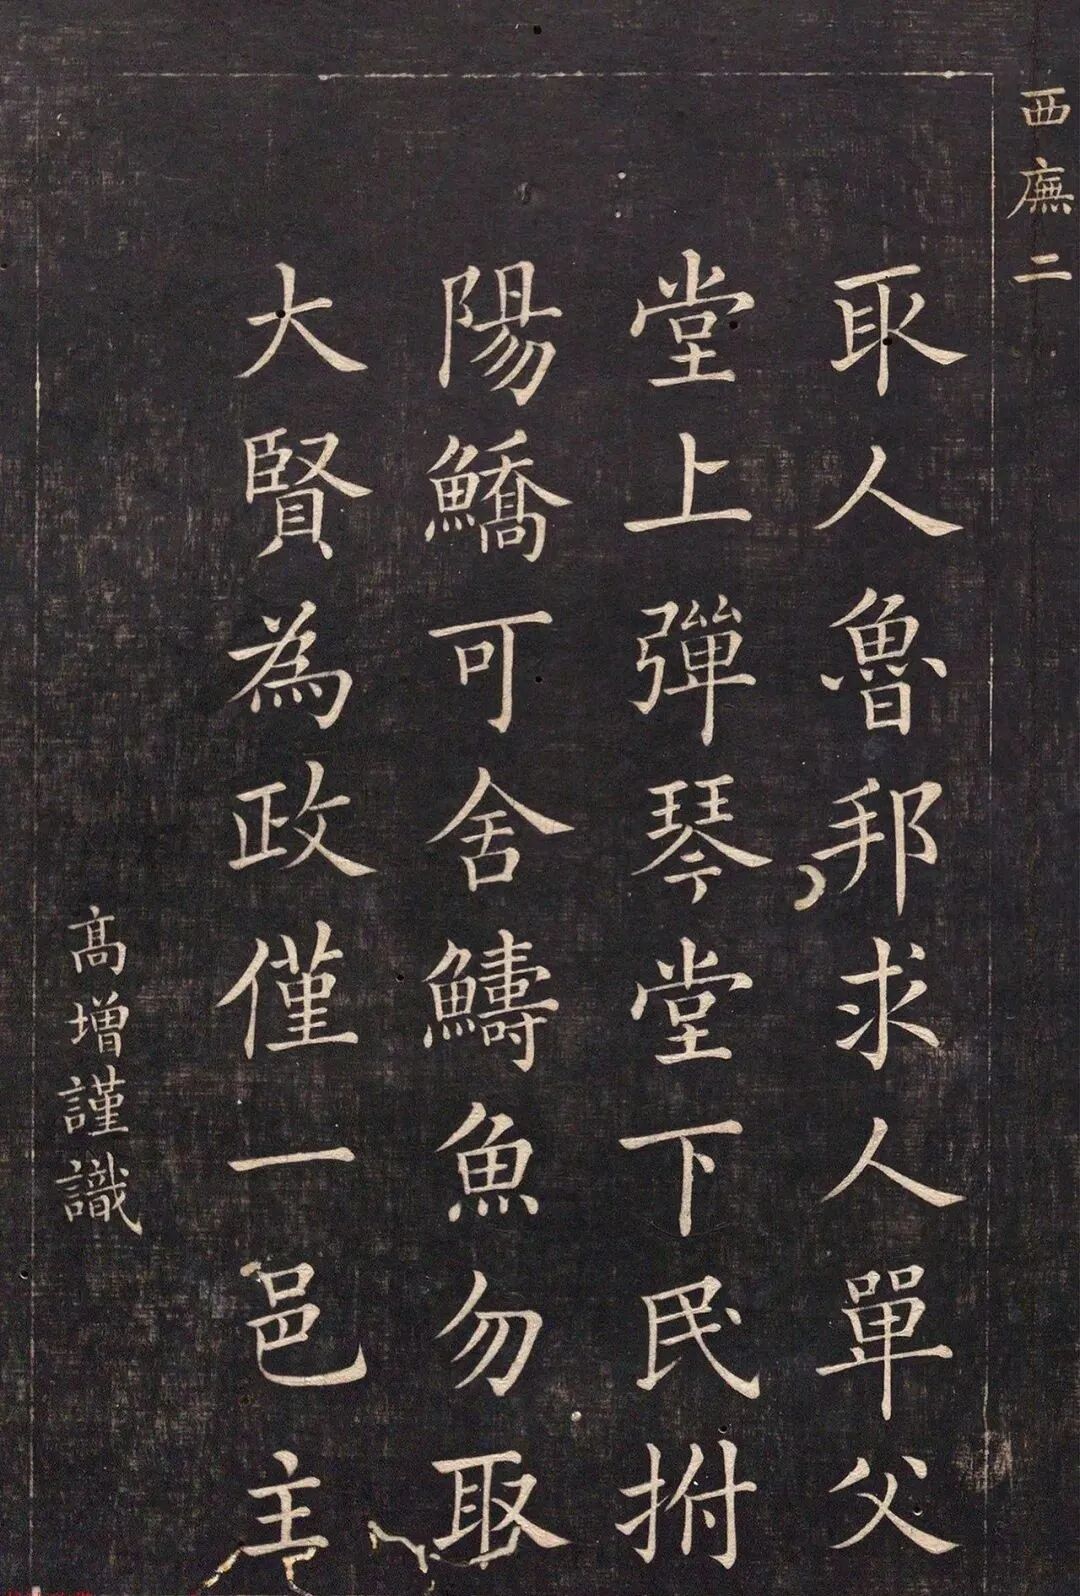 西廡二
取人魯邦求人單父
堂上彈琴堂下民拊
陽鱎可舍鱗魚勿取
大賢為政僅一邑主
高增謹識